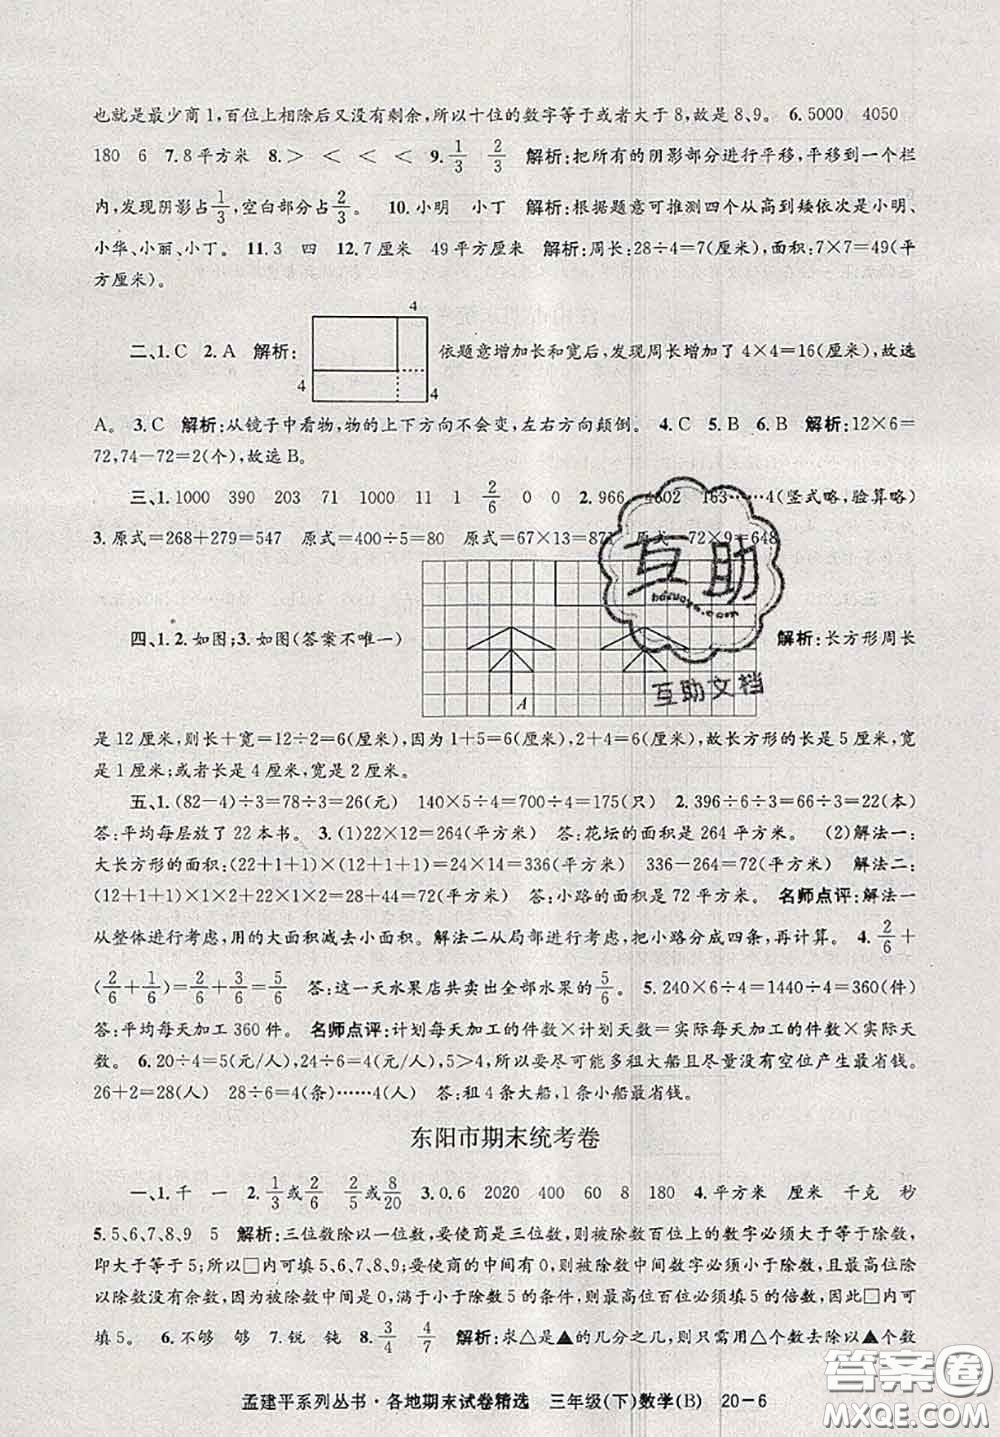 也就是最少商1,百位上相除后又没有剩余,所以十位的数字等于或者大于8,故是8、9。 6.5000 4050
180 6 7.8平方米 8.> < < < 9.1/3 2/3 解析:把所有的阴影部分进行平移,平移到一个栏
内,发现阴影占1/3,空白部分占2/3。 10.小明 小丁 解析:根据题意可推测四个从高到矮依次是小明、
小华、小丽、小丁。 11.3 四 12.7厘米 49平方厘米 解析:周长:28÷4=7(厘米),面积:7×7=49(平
方厘米)。
4
二、1.C 2.A 解析: 依题意增加长和宽后,发现周长增加了4×4=16(厘米),故选
4 4
A。 3.C 解析:从镜子中看物,物的上下方向不会变,左右方向颠倒。 4.C 5.B 6.B 解析:12×6=
72,74-72=2(个),故选B。
三、1.1000 390 203 71 1000 11 1 2/6 0 0 2.966 4602 163……4(竖式略,验算略)
3.原式=268+279=547 原式=400÷5=80 原式=67×13=871 原式=72×9=648
四、1.2.如图;3.如图(答案不唯一) 解析:长方形周长
A
互助
互助文档
是12厘米,则长+宽=12÷2=6(厘米),因为1+5=6(厘米),2+4=6(厘米),故长方形的长是5厘米,宽
是1厘米;或者长是4厘米,宽是2厘米。
五、1.(82-4)÷3=78÷3=26(元) 140×5÷4=700÷4=175(只) 2.396÷6÷3=66÷3=22(本)
答:平均每层放了22本书。 3.(1)22×12=264(平方米) 答:花坛的面积是264平方米。 (2)解法一:
大长方形的面积:(22+1+1)×(12+1+1)=24×14=336(平方米) 336-264=72(平方米) 解法二:
(12+1+1)×1×2+22×1×2=28+44=72(平方米) 答:小路的面积是72平方米。 名师点评:解法一
从整体进行考虑,用的大面积减去小面积。解法二从局部进行考虑,把小路分成四条,再计算。 4.2/6+
(2/6+1/6)=2/6+3/6=5/6 答:这一天水果店共卖出全部水果的5/6。 5.240×6÷4=1440÷4=360(件)
答:平均每天加工360件。 名师点评:计划每天加工的件数×计划天数=实际每天加工的件数×实际天
数。 6.20÷4=5(元/人),24÷6=4(元/人),5>4,所以要尽可能多租大船且尽量没有空位产生最省钱。
26+2=28(人) 28÷6=4(条)……4(人) 答:租4条大船,1条小船最省钱。
东阳市期末统考卷
一、1.千 一 2.1/3或2/6 2/5或8/20 3.0.6 2020 400 60 8 180 4.平方米 厘米 千克 秒
5.5、6、7、8、9 5 解析:三位数除以一位数,要使商是三位数,则被除数百位上的数字必须大于等于除数,
即大于等于5;所以□内可填5、6、7、8、9;要使商的中间有0,则被除数中间数字必须小于除数,且最高位除
以除数没有余数,因为被除数中间是0,满于小于除数5的条件,则最高位百位必须填5的倍数,因此□内可
填5。 6.不够 够 7.锐 钝 8.3/4 4/7 解析:求△是▲的几分之几,则只需用△个数去除以▲个数
孟建平系列丛书·各地期末试卷精选 三年级(下)数学(B) 20-6
答案圈
MXQE.COM